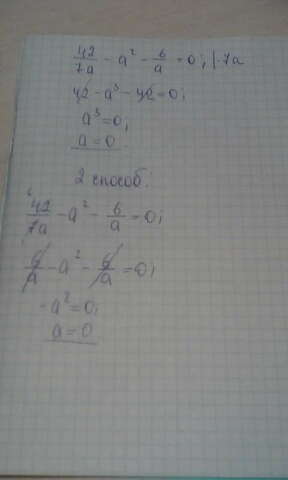 42/7a - a² - 6/a = 0; | · 7a
42 - a³ - 42 = 0;
a³ = 0;
a = 0
2 способ:
42/7a - a² - 6/a = 0;
6/a - a² - 6/a = 0;
-a² = 0;
a = 0